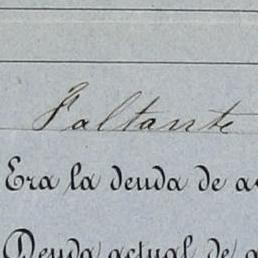 Faltante
Era la deuda de
Deuda actual de